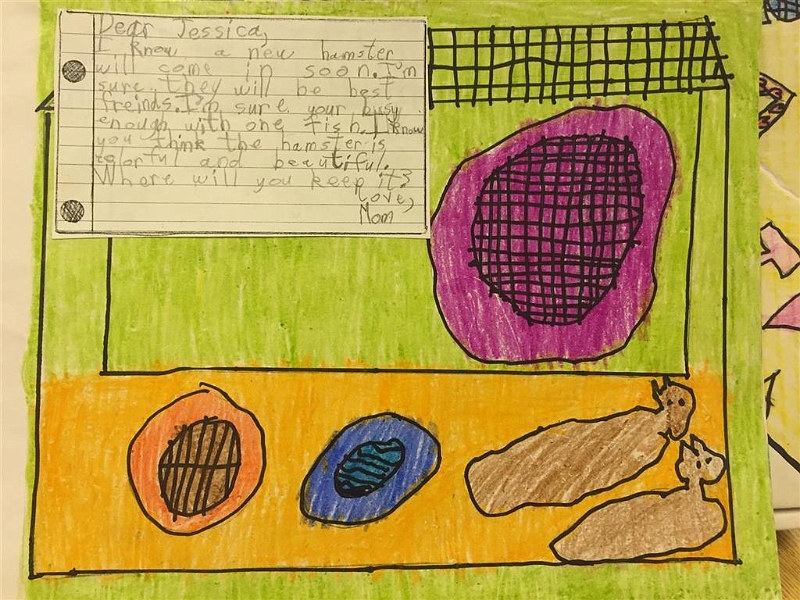 Dear Jessica,
I know a new hamster
will come in soon. I'm
sure they will be best
freinds. I'm sure your busy
enough with one fish. I know
you think the hamster is
colorful and beautiful.
Where will you keep it?
Love,
Mom